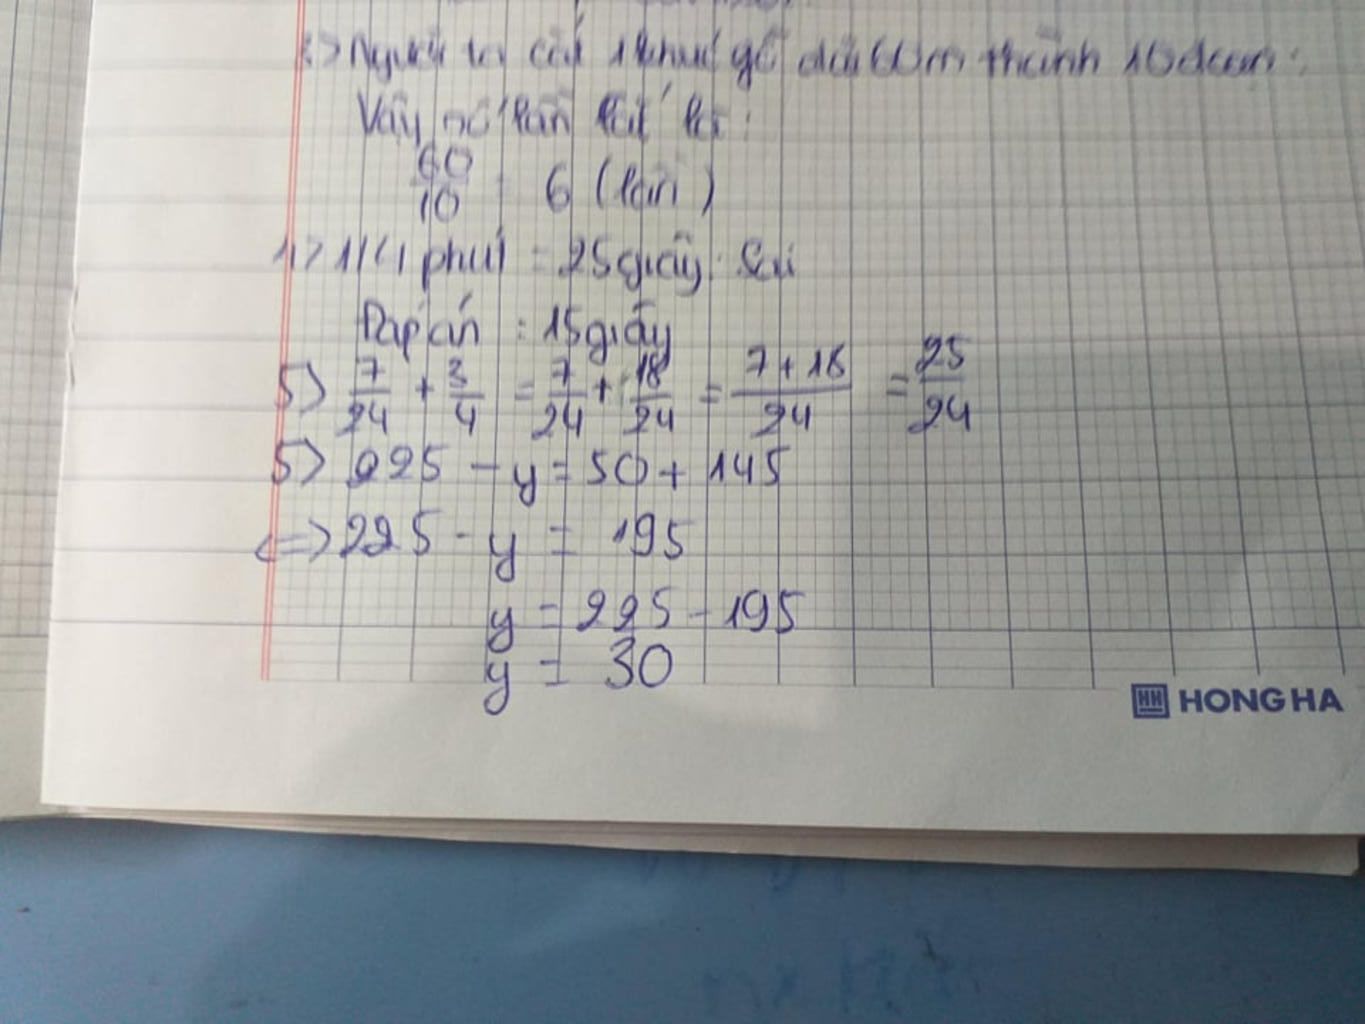 Người ta cắt 1 khúc gỗ dài 60m thành 10 đoạn:
Vậy số lần cắt là:
60/10 = 6 (lần)
1> 1/4 phút = 25 giây: Sai
Đáp án: 15 giây
5> 7/24 + 3/4 = 7/24 + 18/24 = 7+18/24 = 25/24
5> 225 - y = 50 + 145
<=> 225 - y = 195
y = 225 - 195
y = 30
HH HONG HA